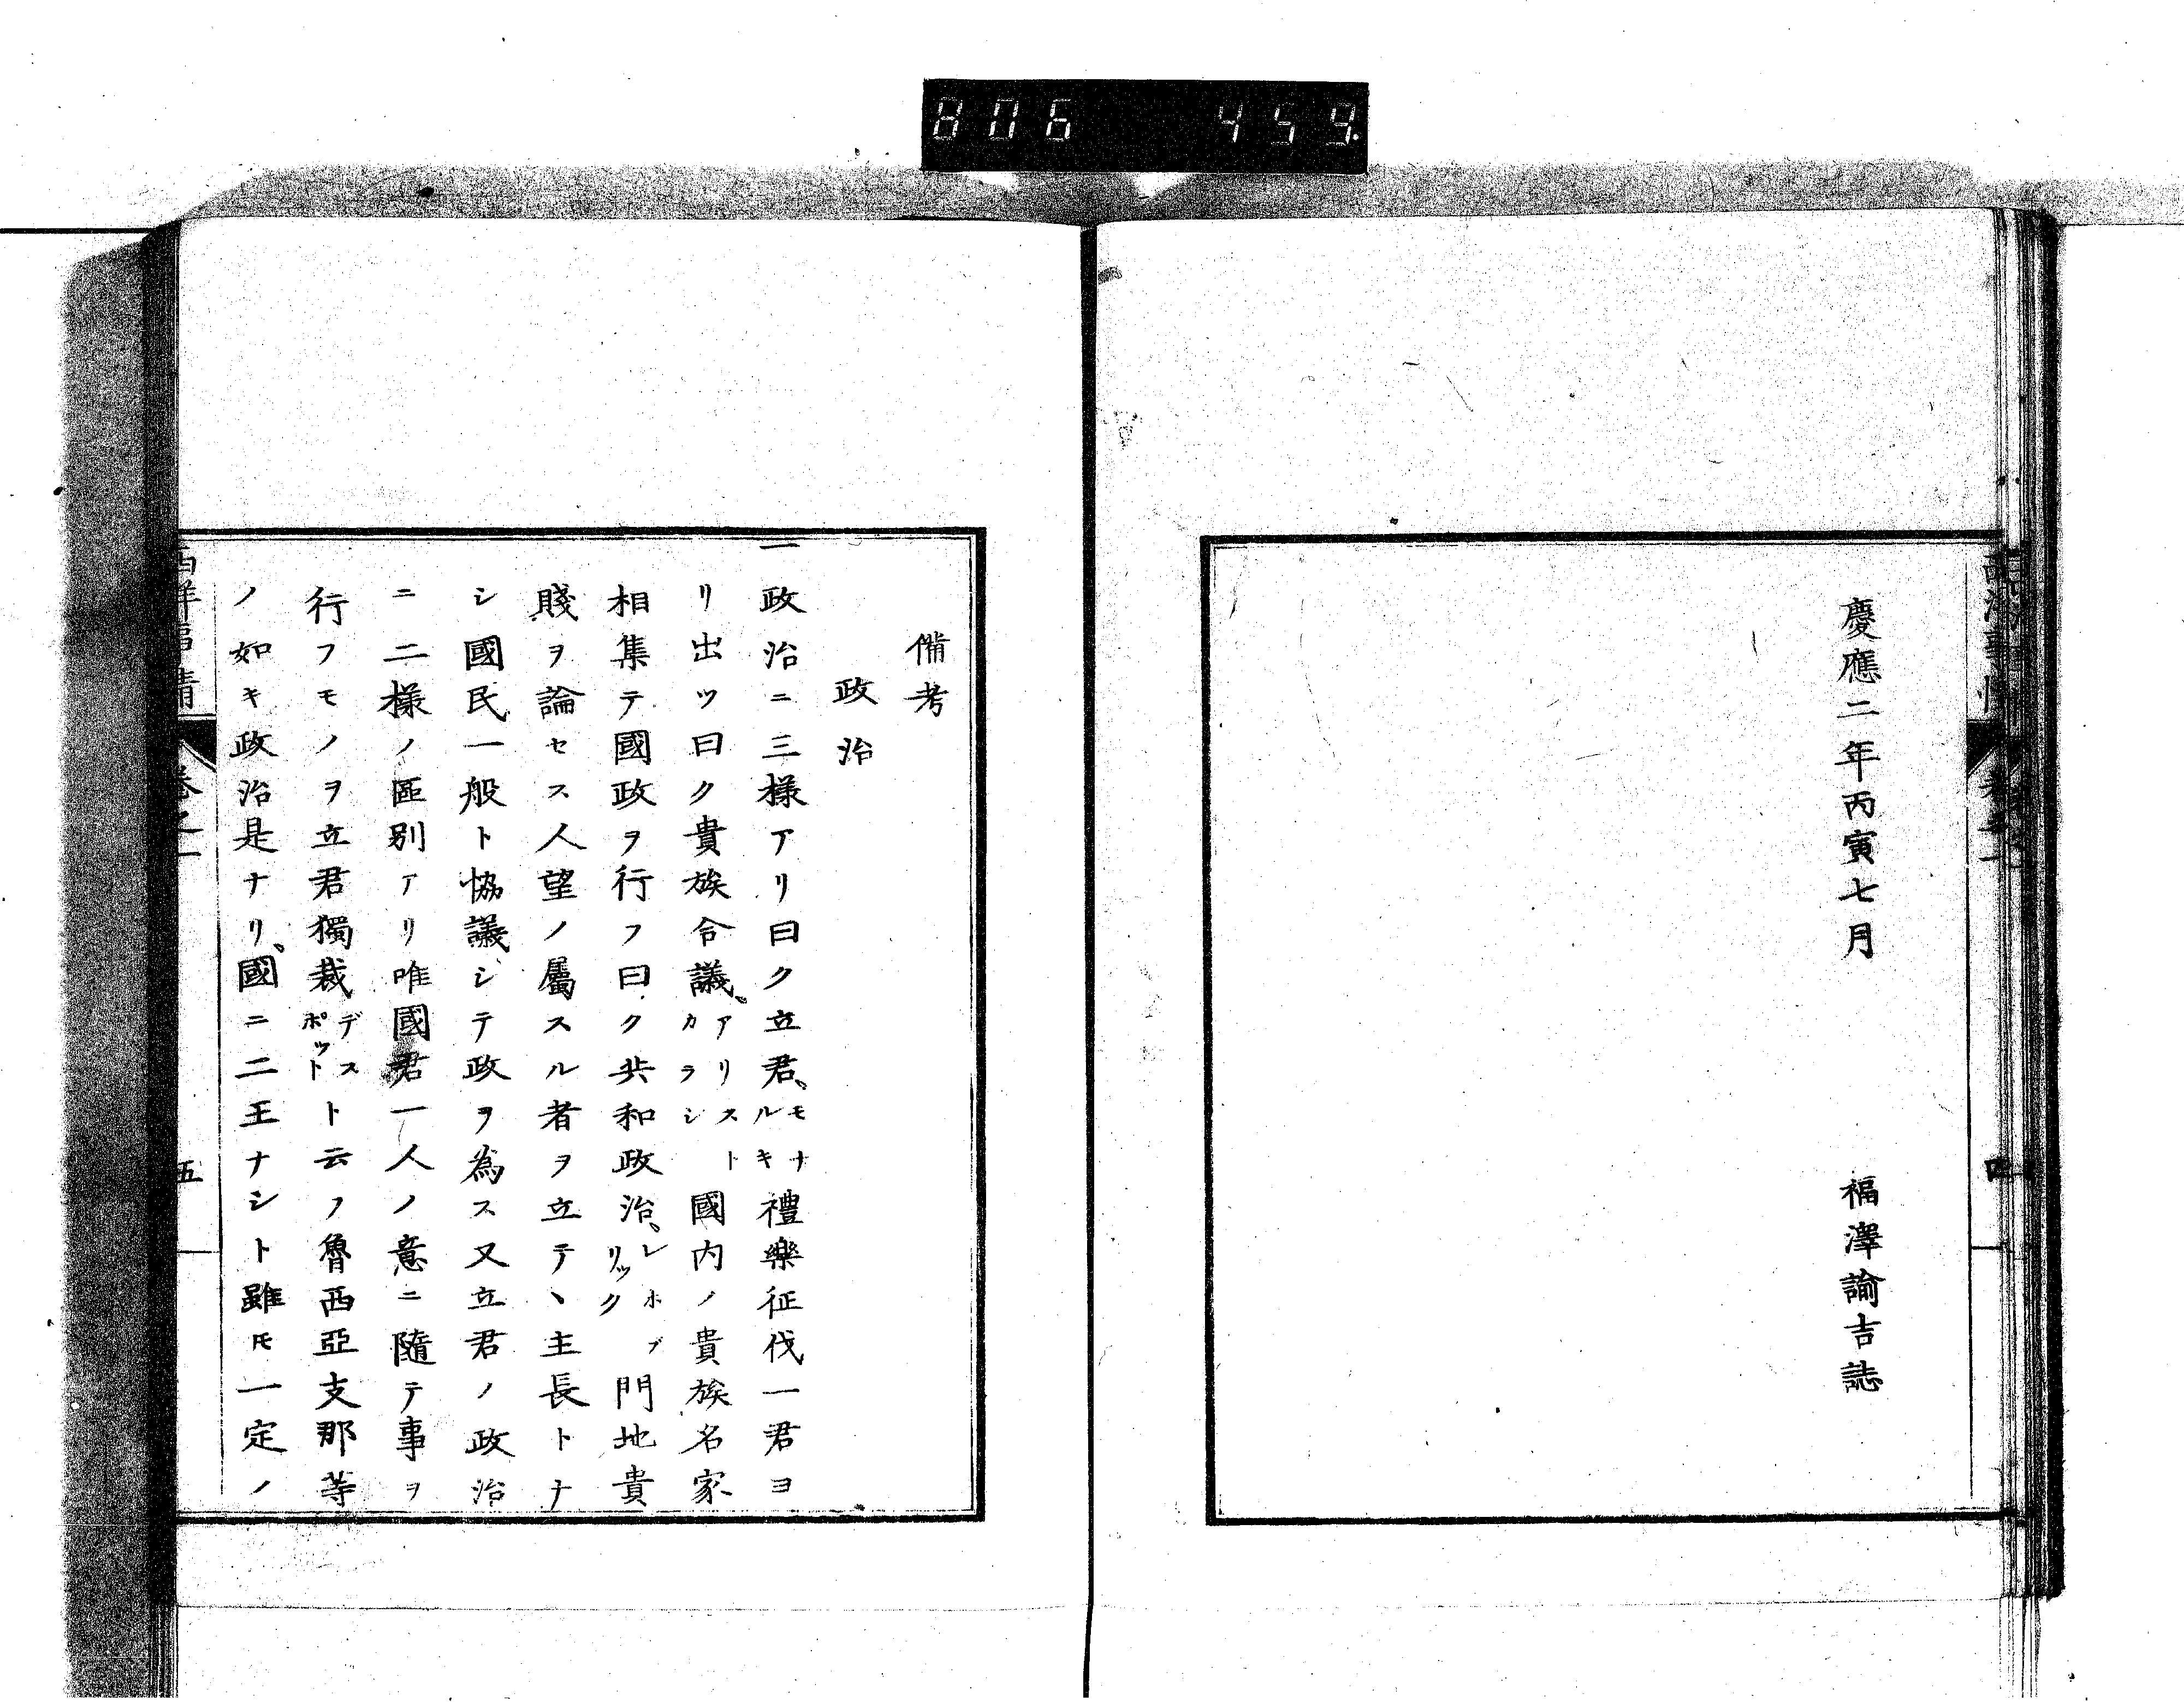 806 459
慶應二年丙寅七月 福澤諭吉誌
四
備考
政治
一政治ニ三樣アリ曰ク立君、モナルキ禮樂征伐一君ヨ
リ出ツ曰ク貴族合議、アリストカラシ國内ノ貴族名家
相集テ國政ヲ行フ曰ク共和政治、レポブリック門地貴
賤ヲ論セス人望ノ屬スル者ヲ立テヽ主長トナ
シ國民一般ト協議シテ政ヲ為ス又立君ノ政治
ニ二樣ノ區別アリ唯國君一人ノ意ニ隨テ事ヲ
行フモノヲ立君獨裁デスポットト云フ魯西亞支那等
ノ如キ政治是ナリ、國ニ二王ナシト雖𪜈一定ノ
西洋事情 卷之一 五